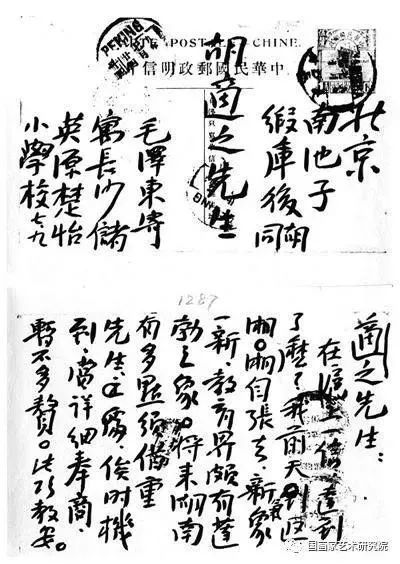 PEKING
POST CHINE.
中華民國郵政明信
北京
南池子
緞庫後胡同
胡適之先生
毛澤東寄
寓長沙儲
英源楚怡
小學校 七九
1287
適之先生：
在滬上一信達到
了麼？我前天返
湘。湘自張去，新氣象
一新，教育界頗有蓬
勃之象。將來湖南
有多點須借重
先生之處，俟時機
到，當詳細奉商，
暫不多贅。此頌教安。
国画家艺术研究院